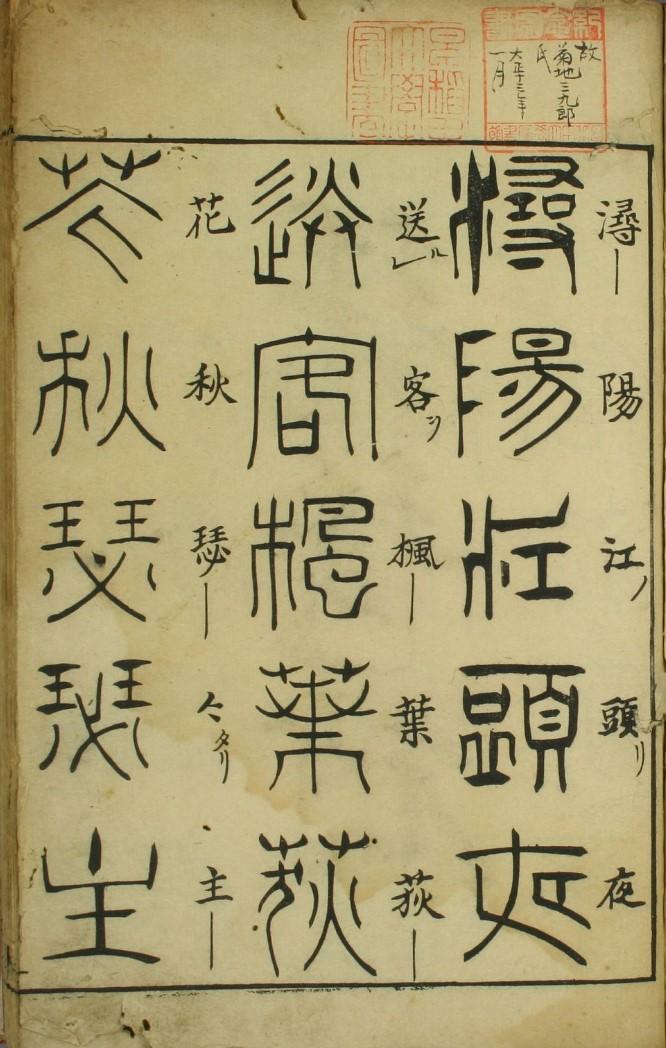 故
菊地三九郎
氏
大正十三年
一月
潯｜陽江ノ頭リ夜
潯陽江頭夜
送ルレ客ヲ楓｜葉荻｜
送客楓葉荻
花秋瑟｜々タリ主｜
花秋瑟瑟主